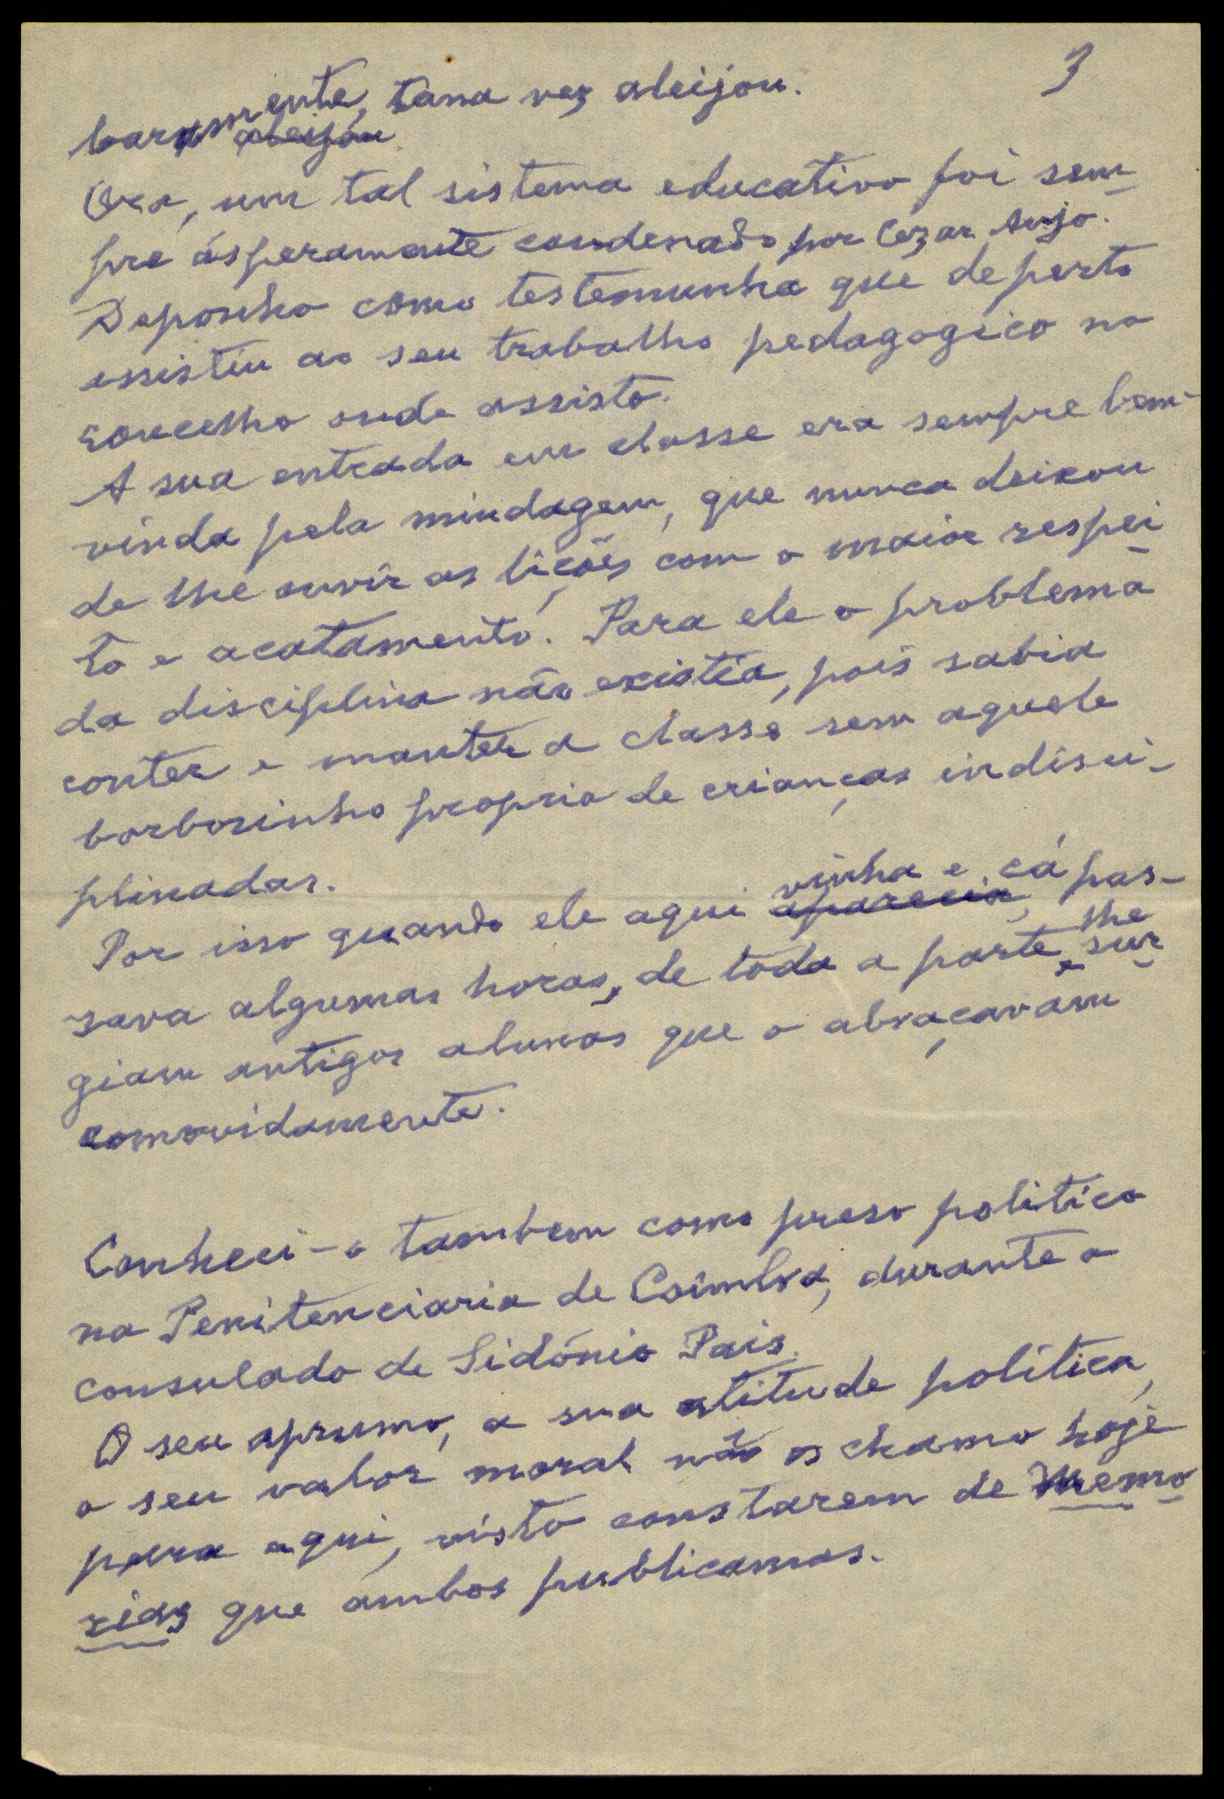 3
baramente, tana vez aleijou.
aleijou
Ora, um tal sistema educativo foi sem-
pre ásperamente condenado por Cezar Anjo.
Deponho como testemunha que de perto
assistiu ao seu trabalho pedagogico no
concelho onde assisto.
A sua entrada em classe era sempre bem-
vinda pela miudagem, que nunca deixou
de lhe ouvir as lições com o maior respei-
to e acatamento. Para ele o problema
da disciplina não existia, pois sabia
conter e manter a classe sem aquele
borborinho proprio de crianças indisci-
plinadas.
Por isso quando ele aqui aparecia, vinha e cá pas-
sava algumas horas, de toda a parte lhe sur-
giam antigos alunos que o abraçavam
comovidamente.
Conheci-o tambem como preso politico
na Penitenciaria de Coimbra, durante o
consulado de Sidónio Pais.
O seu aprumo, a sua atitude política,
o seu valor moral não os chamo hoje
para aqui, visto constarem de Memo
rias que ambos publicamos.